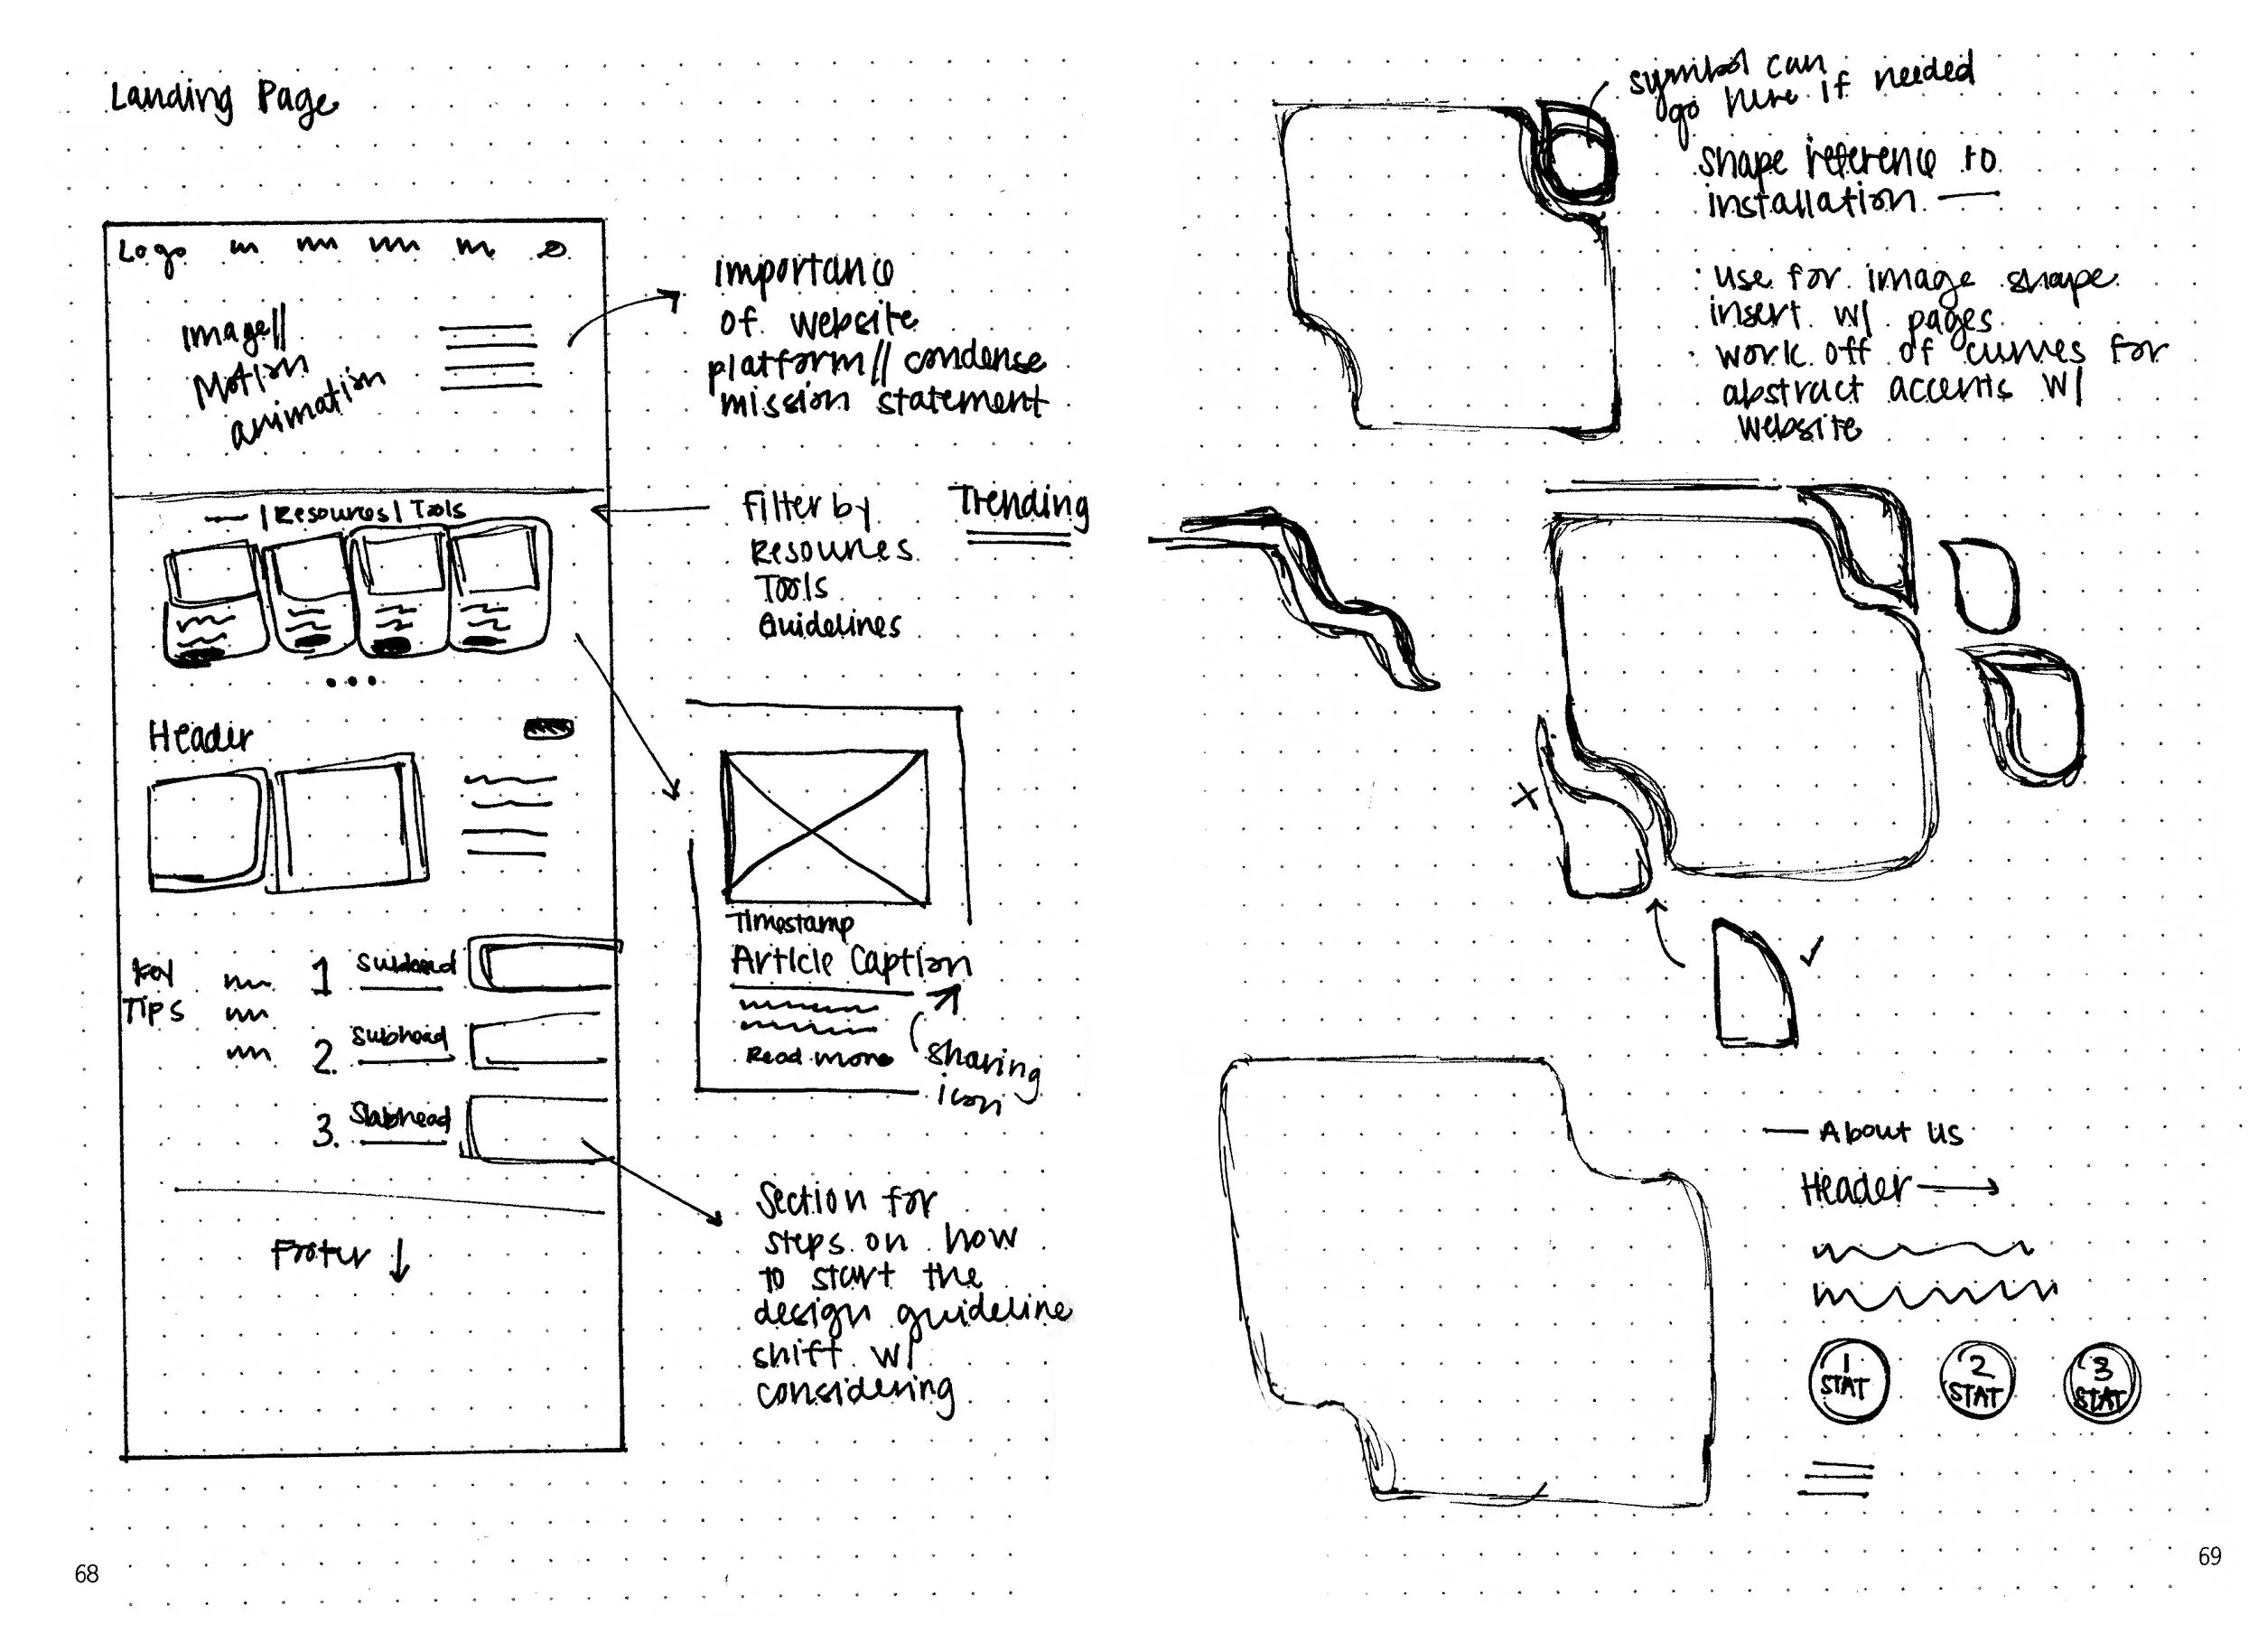 Landing Page
Logo
Image//
Motion
animation
importance
of website
platform// condense
mission statement
| Resources | Tools
Filter by
Resources
Tools
Guidelines
Trending
Header
Timestamp
Article Caption
Read more
sharing
icon
Key
Tips
1 Subhead
2. Subhead
3. Subhead
Section for
steps on how
to start the
design guideline
shift w/
considering
Footer ↓
68
symbol can
go here if needed
shape reference to
installation —
· use for image shape
insert w/ pages
· work off of curves for
abstract accents w/
website
x
✓
— About us
Header →
1
STAT
2
STAT
3
STAT
69